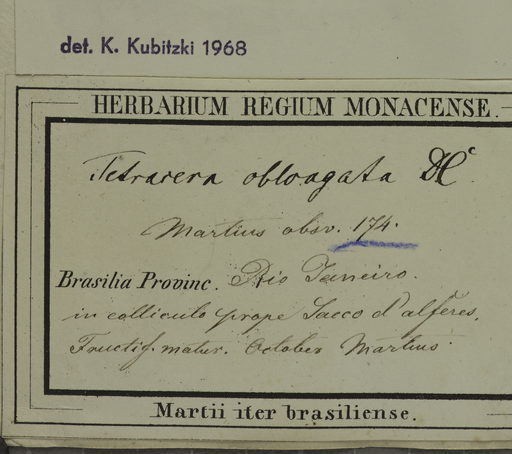 det. K. Kubitzki 1968
HERBARIUM REGIUM MONACENSE.
Tetracera oblongata DC
Martius obsv. 174.
Brasilia Provinc. Rio Janeiro.
in colliculo prope Sacco d'alferes.
Fructif. matur. October Martius
Martii iter brasiliense.